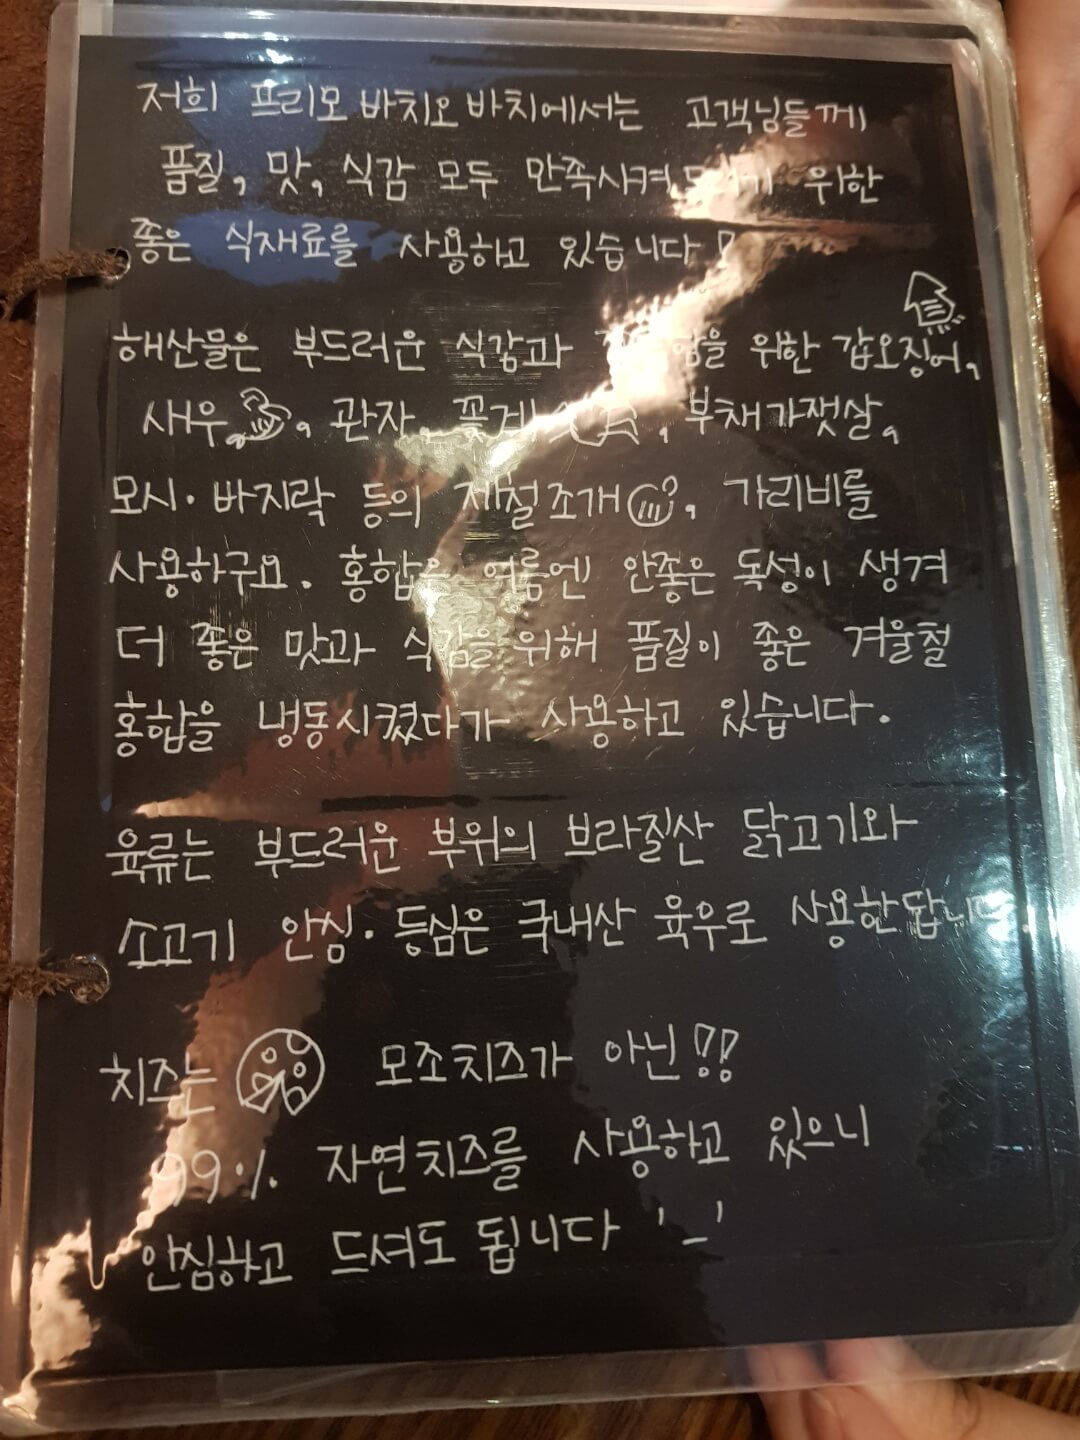 저희 프리모 바치오 바치에서는 고객님들께
품질, 맛, 식감 모두 만족시켜 위한
좋은 식재료를 사용하고 있습니다!
해산물은 부드러운 식감과 위한 갑오징어,
새우, 관자, 꽃게, 부채가잿살,
모시·바지락 등의 제철조개, 가리비를
사용하구요. 홍합은 여름엔 안좋은 독성이 생겨
더 좋은 맛과 식감을 위해 품질이 좋은 겨울철
홍합을 냉동시켰다가 사용하고 있습니다.
육류는 부드러운 부위의 브라질산 닭고기와
소고기 안심·등심은 국내산 육우로 사용한답니다.
치즈는 모조치즈가 아닌!!
99% 자연치즈를 사용하고 있으니
안심하고 드셔도 됩니다 '_'